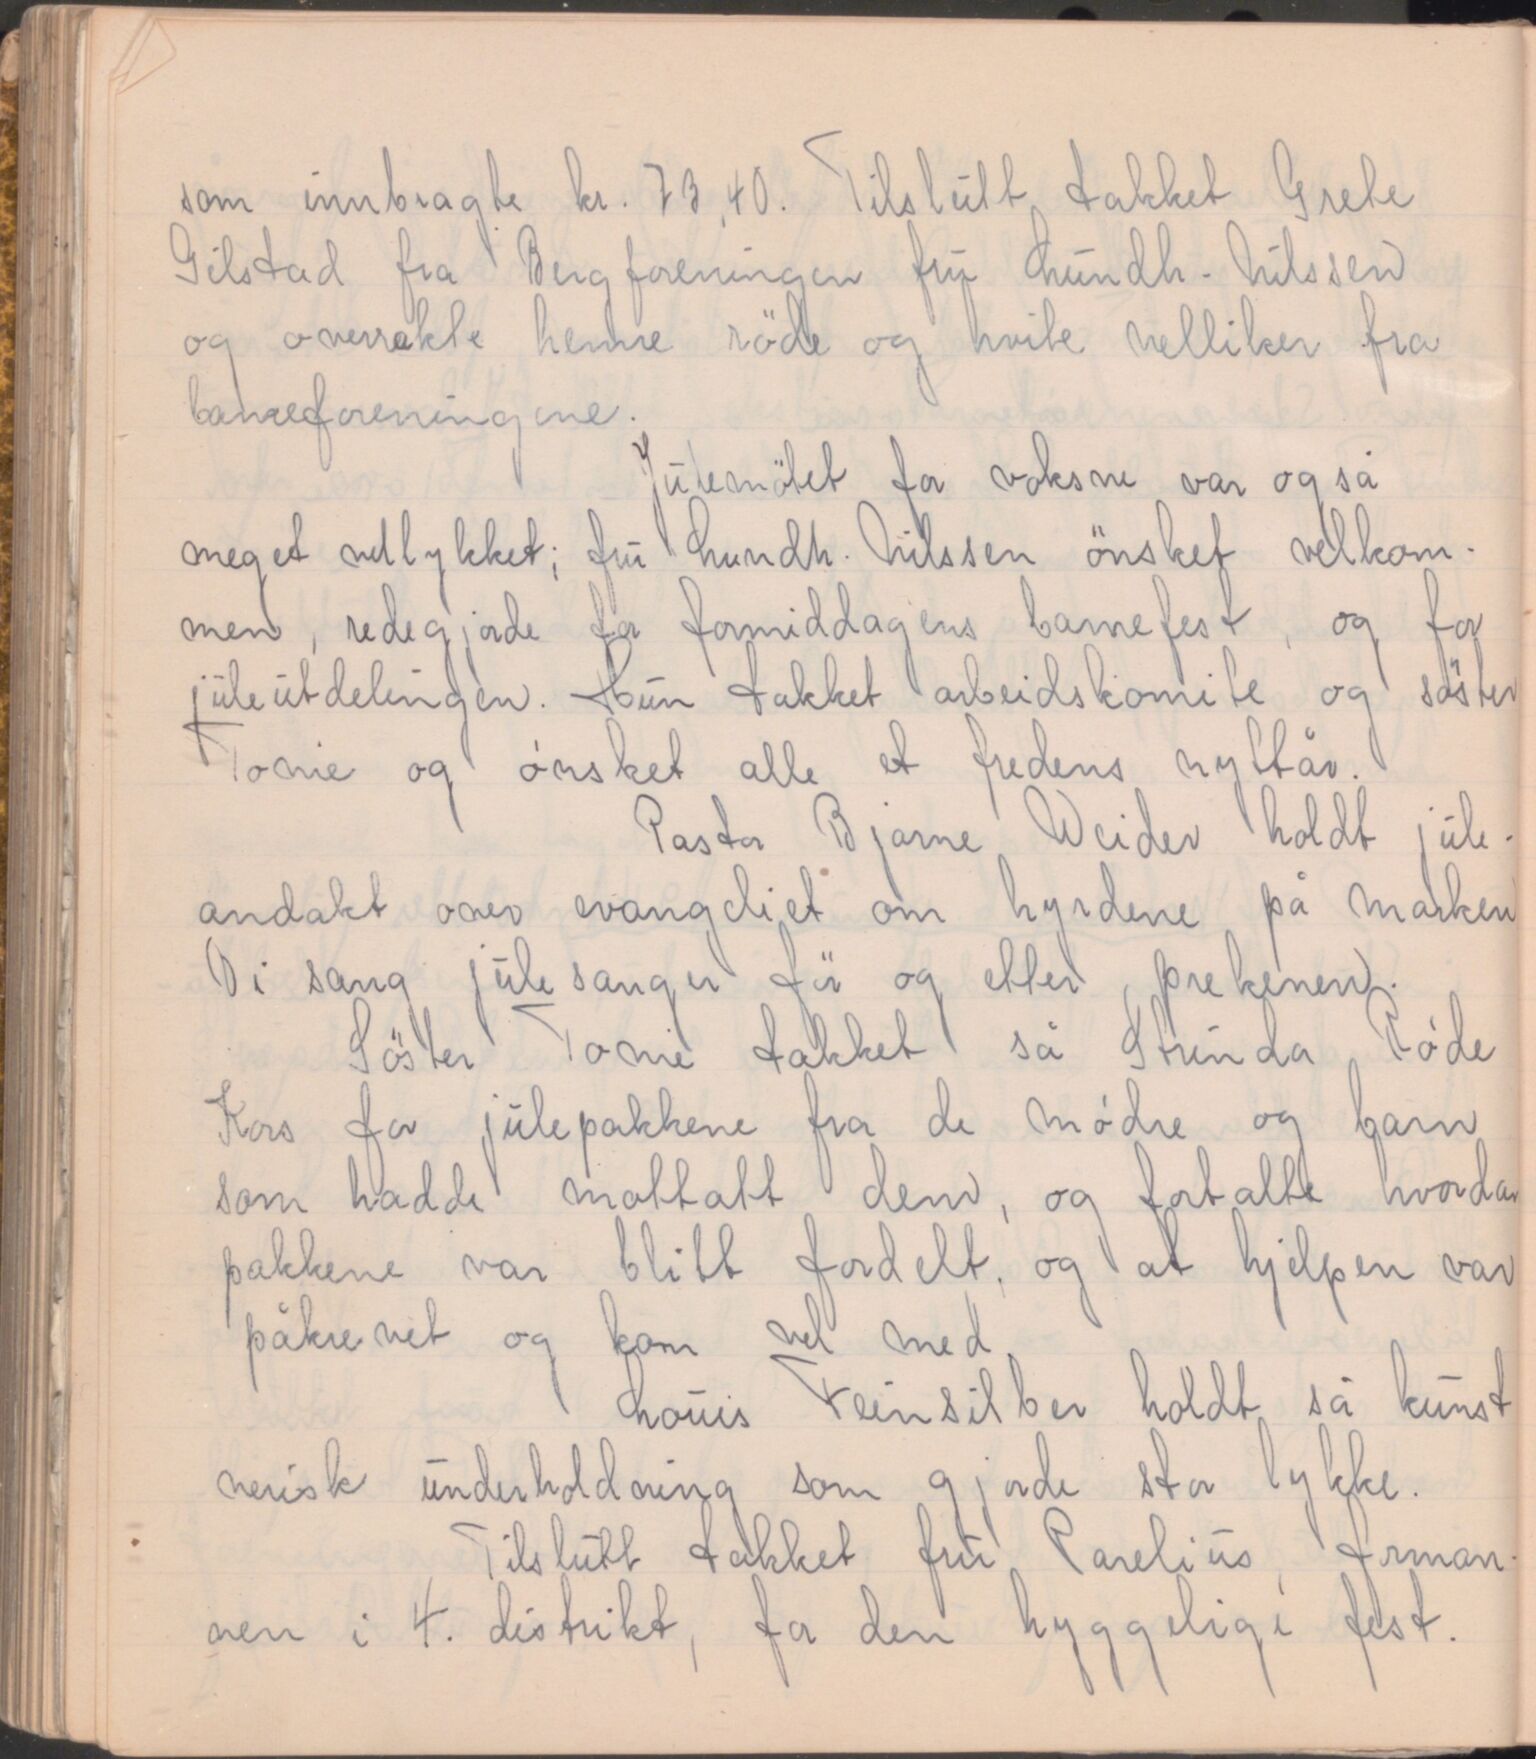 som innbragte kr. 73,40. Tilslutt takket Grete
Gilstad fra Bergforeningen fru Lundh-Nilssen
og overrakte henne röde og hvite nelliker fra
barneforeningene.
Julemötet for voksne var også
meget vellykket; fru Lundh. Nilssen önsket velkom-
men, redegjorde for formiddagens barnefest, og for
juleutdelingen. Hun takket arbeidskomite og söster
Tonie og ónsket alle et fredens nyttår.
Pastor Bjarne Weider holdt jule-
andakt over evangeliet om hyrdene på marken
Vi sang julesanger för og etter prekenen.
Söster Tonie takket så Strinda Róde
Kors for julepakkene fra de módre og barn
som hadde mottatt dem, og fortalte hvordan
pakkene var blitt fordelt, og at hjelpen var
påkrevet og kom vel med.
Louis Feinsilber holdt så kunst
nerisk underholdning som gjorde stor lykke.
Tilslutt takket fru Parelius, forman-
nen i 4. distrikt, for den hyggelige fest.